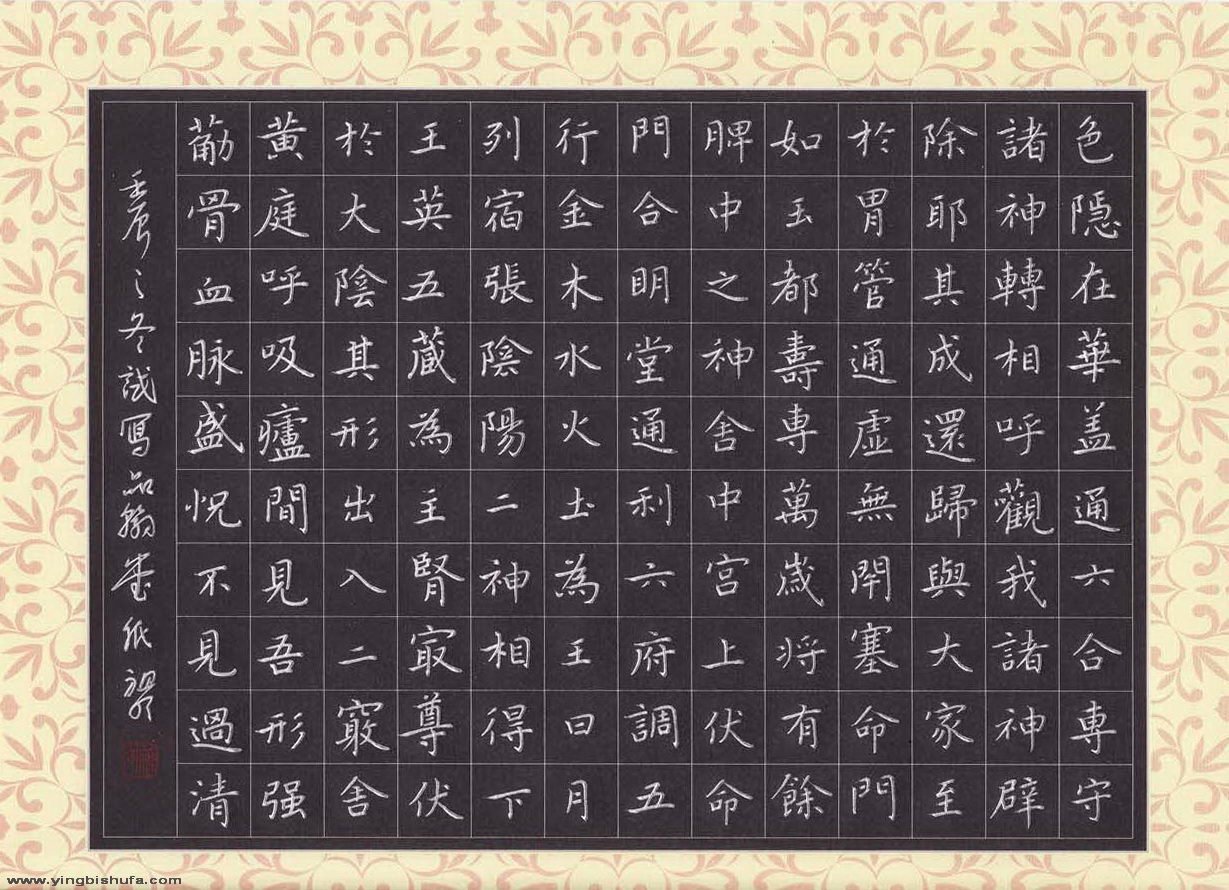 色隱在華盖通六合專守
諸神轉相呼觀我諸神辟
除耶其成還歸與大家至
於胃管通虛無閇塞命門
如玉都壽專萬歲將有餘
脾中之神舍中宮上伏命
門合眀堂通利六府調五
行金木水火土為王日月
列宿張陰陽二神相得下
王英五蔵為主腎冣尊伏
於大陰其形出入二竅舍
黃庭呼吸廬間見吾形强
葡骨血脉盛怳不見過清
之冬試寫品翰堂紙
www.yingbishufa.com